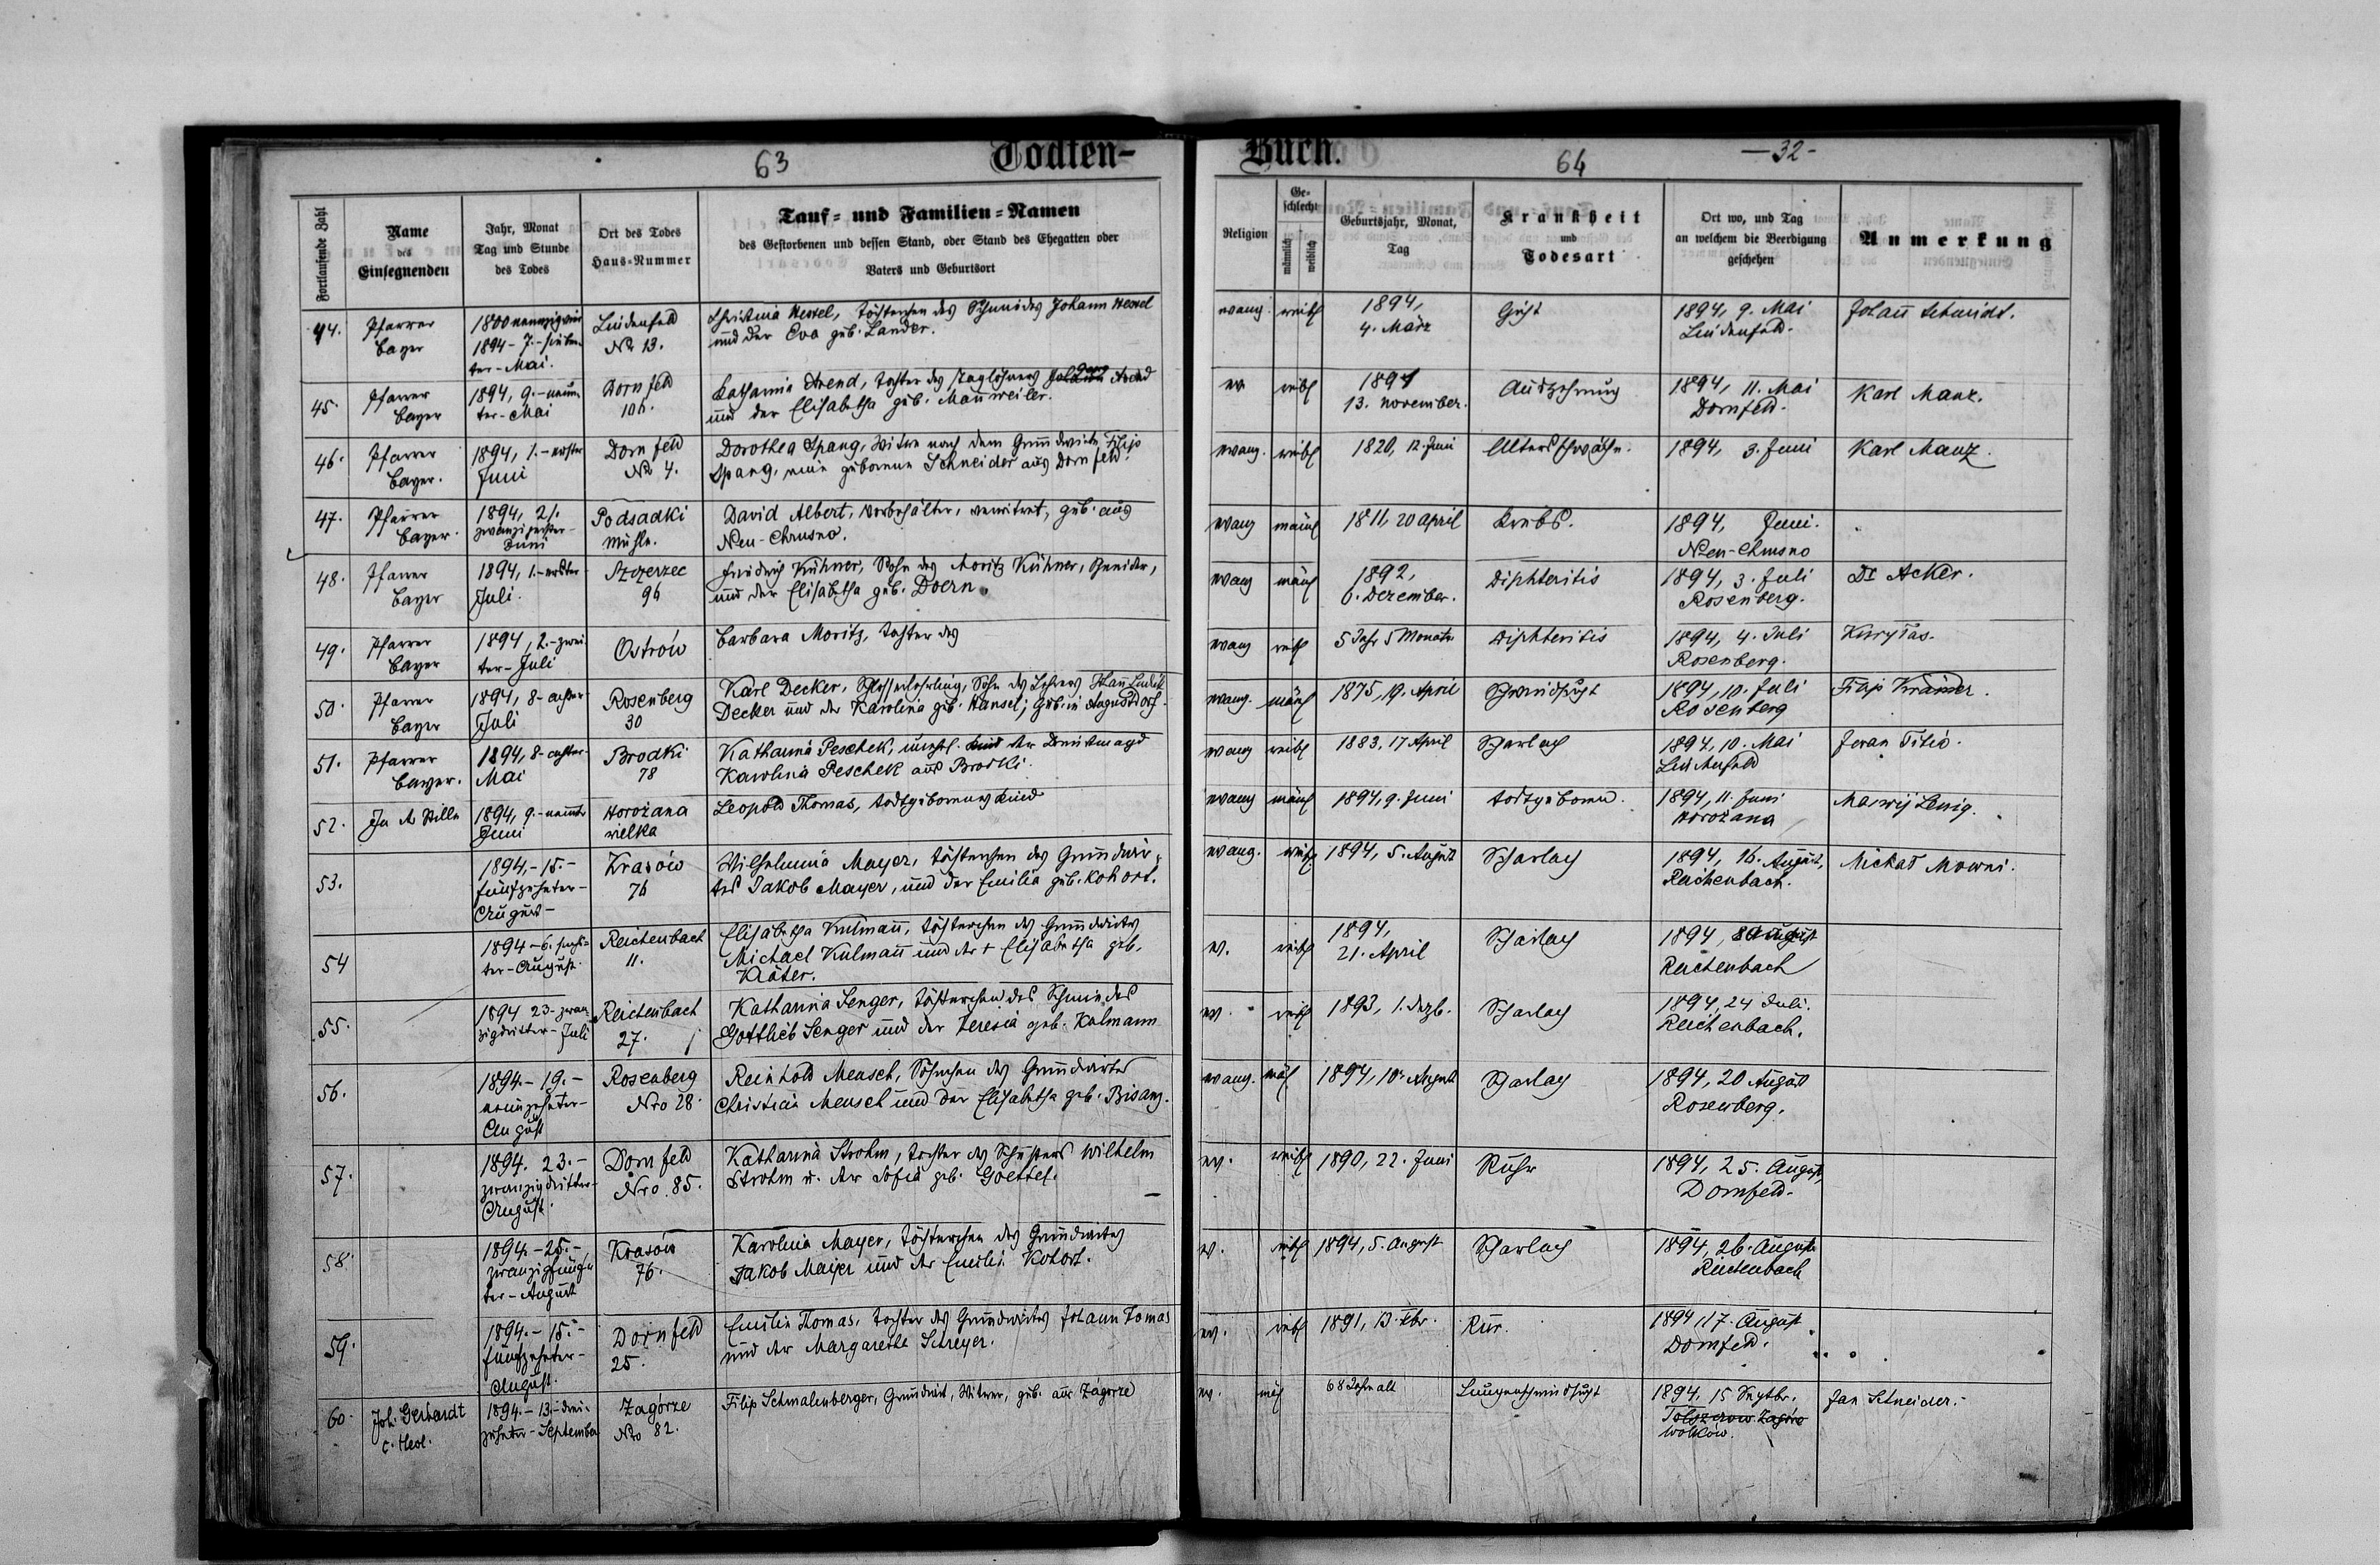 63
Todten-
Fortlaufende Zahl
Name
des
Einsegnenden
Jahr, Monat
Tag und Stunde
des Todes
Ort des Todes
Haus-Nummer
Tauf- und Familien-Namen
des Gestorbenen und dessen Stand, oder Stand des Ehegatten oder
Vaters und Geburtsort
44.
Pfarrer
Bayer
1894 - 7.
ter - Mai.
Lindenfeld
No 13.
Christina Wessel, Töchterchen des Schmiedes Johann Wessel
und der Eva geb. Lander.
45.
Pfarrer
Bayer
1894, 9. - neun
ter - Mai
Dornfeld
106.
Katharina Arend, Tochter des Taglöhners Arend
und der Elisabetha geb. Mannweiler.
46.
Pfarrer
Bayer.
1894, 1. - erster
Juni
Dornfeld
No 4.
Dorothea Spang, Witwe nach dem Grundwirte Filip
Spang, eine geborene Schneider aus Dornfeld.
47.
Pfarrer
Bayer.
1894, 21.
Juni
Podsadki
Mühle.
David Albert, Vorbehälter, verwitwet, geb. aus
Neu-Chrusno.
48.
Pfarrer
Bayer
1894, 1. - erster
Juli.
Szczerzec
96
Friedrich Kühner, Sohn des Moritz Kühner,
und der Elisabetha geb. Doern.
49.
Pfarrer
Bayer
1894, 2. - zwei
ter - Juli
Ostrów
Barbara Moritz, Tochter des
50.
Pfarrer
Bayer
1894, 8 - achter
Juli
Rosenberg
30
Karl Decker, Schlosserlehrling, Sohn des Lehrers
Decker und der Karolina geb. Hansel; geb. in Augustdorf.
51.
Pfarrer
Bayer.
1894, 8 - achter
Mai
Brodki
78
Katharina Peschek, unehl. Kind der Dienstmagd
Karolina Peschek aus Brodki.
52.
In der Stille
1894, 9. - neunter
Juni
Horożana
wielka
Leopold Thomas, todtgeborenes Kind
53.
1894, - 15. -
fünfzehnter -
August -
Krasów
76
Wilhelmina Mayer, Töchterchen des Grundwir-
tes Jakob Mayer, und der Emilia geb. Kohort.
54
1894 - 6. sechs-
ter - August.
Reichenbach
11.
Elisabetha Kulmann, Töchterchen des Grundwirtes
Michael Kulmann und der + Elisabetha geb.
Kräter.
55.
1894 23 - zwan
zigdritter - Juli
Reichenbach
27.
Katharina Senger, Töchterchen des Schmiedes
Gottlieb Senger und der Teresia geb. Kulmann
56.
1894 - 19. -
neunzehnter -
August
Rosenberg
Nro 28.
Reinhold Mensch, Söhnchen des Grundwirtes
Christian Mensch und der Elisabetha geb. Bisanz.
57.
1894. 23. -
zwanzigdritter -
August.
Dornfeld
Nro. 85.
Katharina Strohm, Tochter des Schusters Wilhelm
Strohm u. der Sofia geb. Goettel.
58.
1894. - 25. -
zwanzigfünf
ter - August
Krasów
76.
Karolina Mayer, Töchterchen des Grundwirtes
Jakob Mayer und der Emilia Kohort.
59.
1894. - 15. -
fünfzehnter -
August.
Dornfeld
25.
Emilie Thomas, Tochter des Grundwirtes Johann Tomas
und der Margarethe Schreyer.
60.
Joh. Gerhardt
c. theol.
1894. - 13 - drei-
zehnter - September
Zagórze
Nro 82.
Filip Schmalenberger, Grundwirt, Witwer, geb. aus Zagórze
Buch.
64
- 32 -
Religion
Ge-
schlecht
männlich
weiblich
Geburtsjahr, Monat,
Tag
Krankheit
und
Todesart
Ort wo, und Tag
an welchem die Beerdigung
geschehen
Anmerkung
evang. weibl
1894,
4. März
Gicht
1894, 9. Mai
Lindenfeld.
Johann Schmidt.
ev weibl
1891
13. November.
Auszehrung
1894, 11. Mai
Dornfeld.
Karl Manz.
evang. weibl
1820, 12. Juni
Altersschwäche.
1894, 3. Juni
Karl Manz.
evang männl
1811, 20 April
Krebs.
1894, Juni.
Neu-Chrusno
evang männl
1892,
6. Dezember.
Diphteritis
1894, 3. Juli
Rosenberg.
Dr Acker.
evang weibl
5 Jahr 5 Monate
Diphteritis
1894, 4. Juli
Rosenberg.
evang. männl
1875, 19. April
Schwindsucht
1894, 10. Juli
Rosenberg
Filip Krämer.
evang weibl
1883, 17 April
Scharlach
1894, 10. Mai
Lindenfeld
evang männl
1894, 9. Juni
todtgeboren.
1894, 11. Juni
Horożana
evang. weibl
1894, 5. August
Scharlach
1894, 16. August,
Reichenbach.
ev. weibl
1894,
21. April
Scharlach
1894, 8 August
Reichenbach
ev. weibl
1893, 1. Dezb.
Scharlach
1894, 24 Juli.
Reichenbach.
evang. mäl
1894, 10. August
Scharlach
1894, 20 August
Rosenberg.
ev. weibl
1890, 22. Juni
Ruhr
1894, 25. August,
Dornfeld.
ev. weibl
1894, 5. August
Scharlach
1894, 26. August
Reichenbach
ev. weibl
1891, 13. Xbr.
Rur.
1894, 17. August
Dornfeld.
ev. mäl
68 Jahre alt
Lungenschwindsucht
1894, 15 Septbr.
Jan Schneider. -